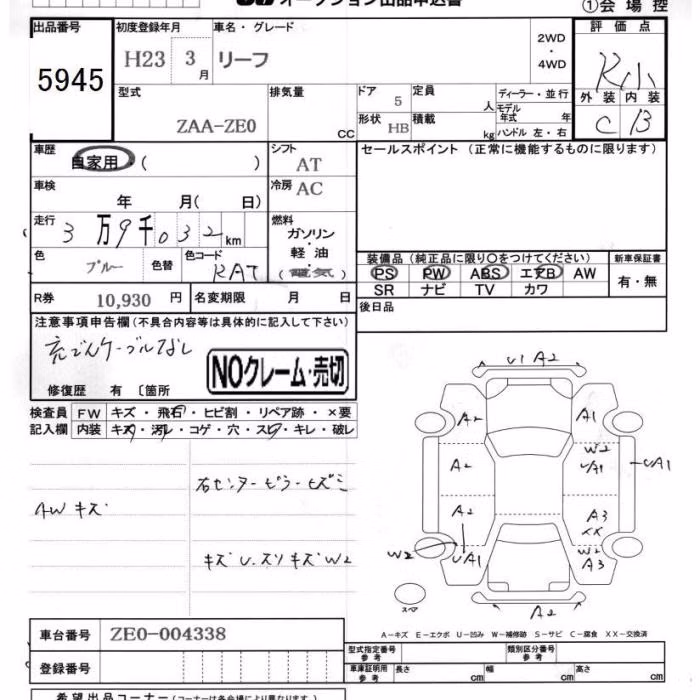 オークション出品申込書
①会場控
出品番号 初度登録年月 車名・グレード 評価点
H23 3月 リーフ 2WD・4WD
5945
R小
型式 排気量 ドア 定員 ディーラー・並行 外装 内装
5 人 モデル年式 年
ZAA-ZE0 CC 形状 HB 積載 kg ハンドル 左・右 C B
車歴 自家用・( ) シフト AT セールスポイント(正常に機能するものに限ります)
車検 年 月( 日) 冷房 AC
走行 3万9千032km 燃料 ガソリン・軽油・(電気)
色 ブルー 色替 色コード RAT
装備品(純正品に限り○をつけてください) 新車保証書
PS PW ABS エアB AW 有・無
SR ナビ TV カワ
R券 10,930円 名変期限 月 日 後日品
注意事項申告欄(不具合内容等は具体的に記入して下さい)
充でんケーブルなし
NOクレーム・売切
修復歴 有 〔箇所
検査員記入欄 FW キズ・飛石・ヒビ割・リペア跡・×要
内装 キズ・汚れ・コゲ・穴・スレ・キレ・破レ
右センターピラーヒズミ
AWキズ
キズU.スリキズW2
U1 A2
A2 A1
W2
A2 UA1 UA1
A2 A3
XX
W2 UA1 W2
A3
スペア A2
A-キズ E-エクボ U-凹み W-補修跡 S-サビ C-腐食 XX-交換済
車台番号 ZE0-004338
型式指定番号 参考 類別区分番号 参考
登録番号 車庫証明用 参考 長さ cm 幅 cm 高さ cm
希望出品コーナー(コーナーは各会場により異なります。)